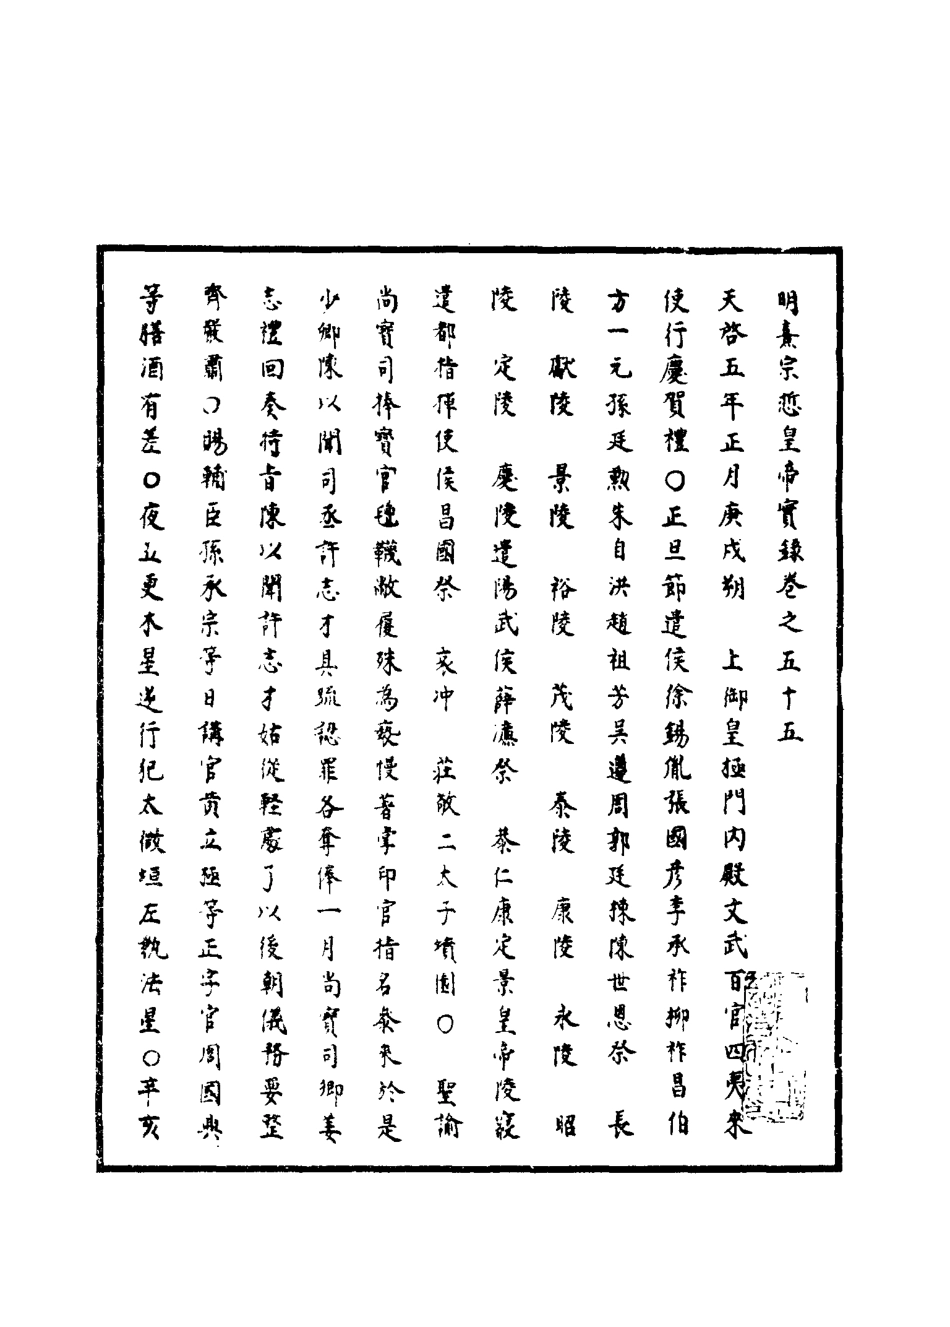 明熹宗悊皇帝實錄卷之五十五
天啓五年正月庚戌朔　上御皇極門內殿文武百官四夷來
使行慶賀禮○正旦節遣侯徐錫胤張國彥李承祚柳祚昌伯
方一元孫廷勲朱自洪趙祖芳吳遵周郭廷揀陳世恩祭　長
陵　獻陵　景陵　裕陵　茂陵　泰陵　康陵　永陵　昭
陵　定陵　慶陵遣陽武侯薛濂祭　恭仁康定景皇帝陵寢
遣都指揮使侯昌國祭　哀冲　莊敬二太子墳園○　聖諭
尚寶司捧寶官氊韈敝屣殊為褻慢著掌印官指名叅來於是
少卿陳以聞司丞許志才具疏認罪各奪俸一月尚寶司卿姜
志禮回奏得旨陳以聞許志才姑從輕處了以後朝儀務要整
齊嚴肅○賜輔臣孫承宗等日講官黄立極等正字官周國興
等膳酒有差○夜五更木星逆行犯太微垣左執法星○辛亥